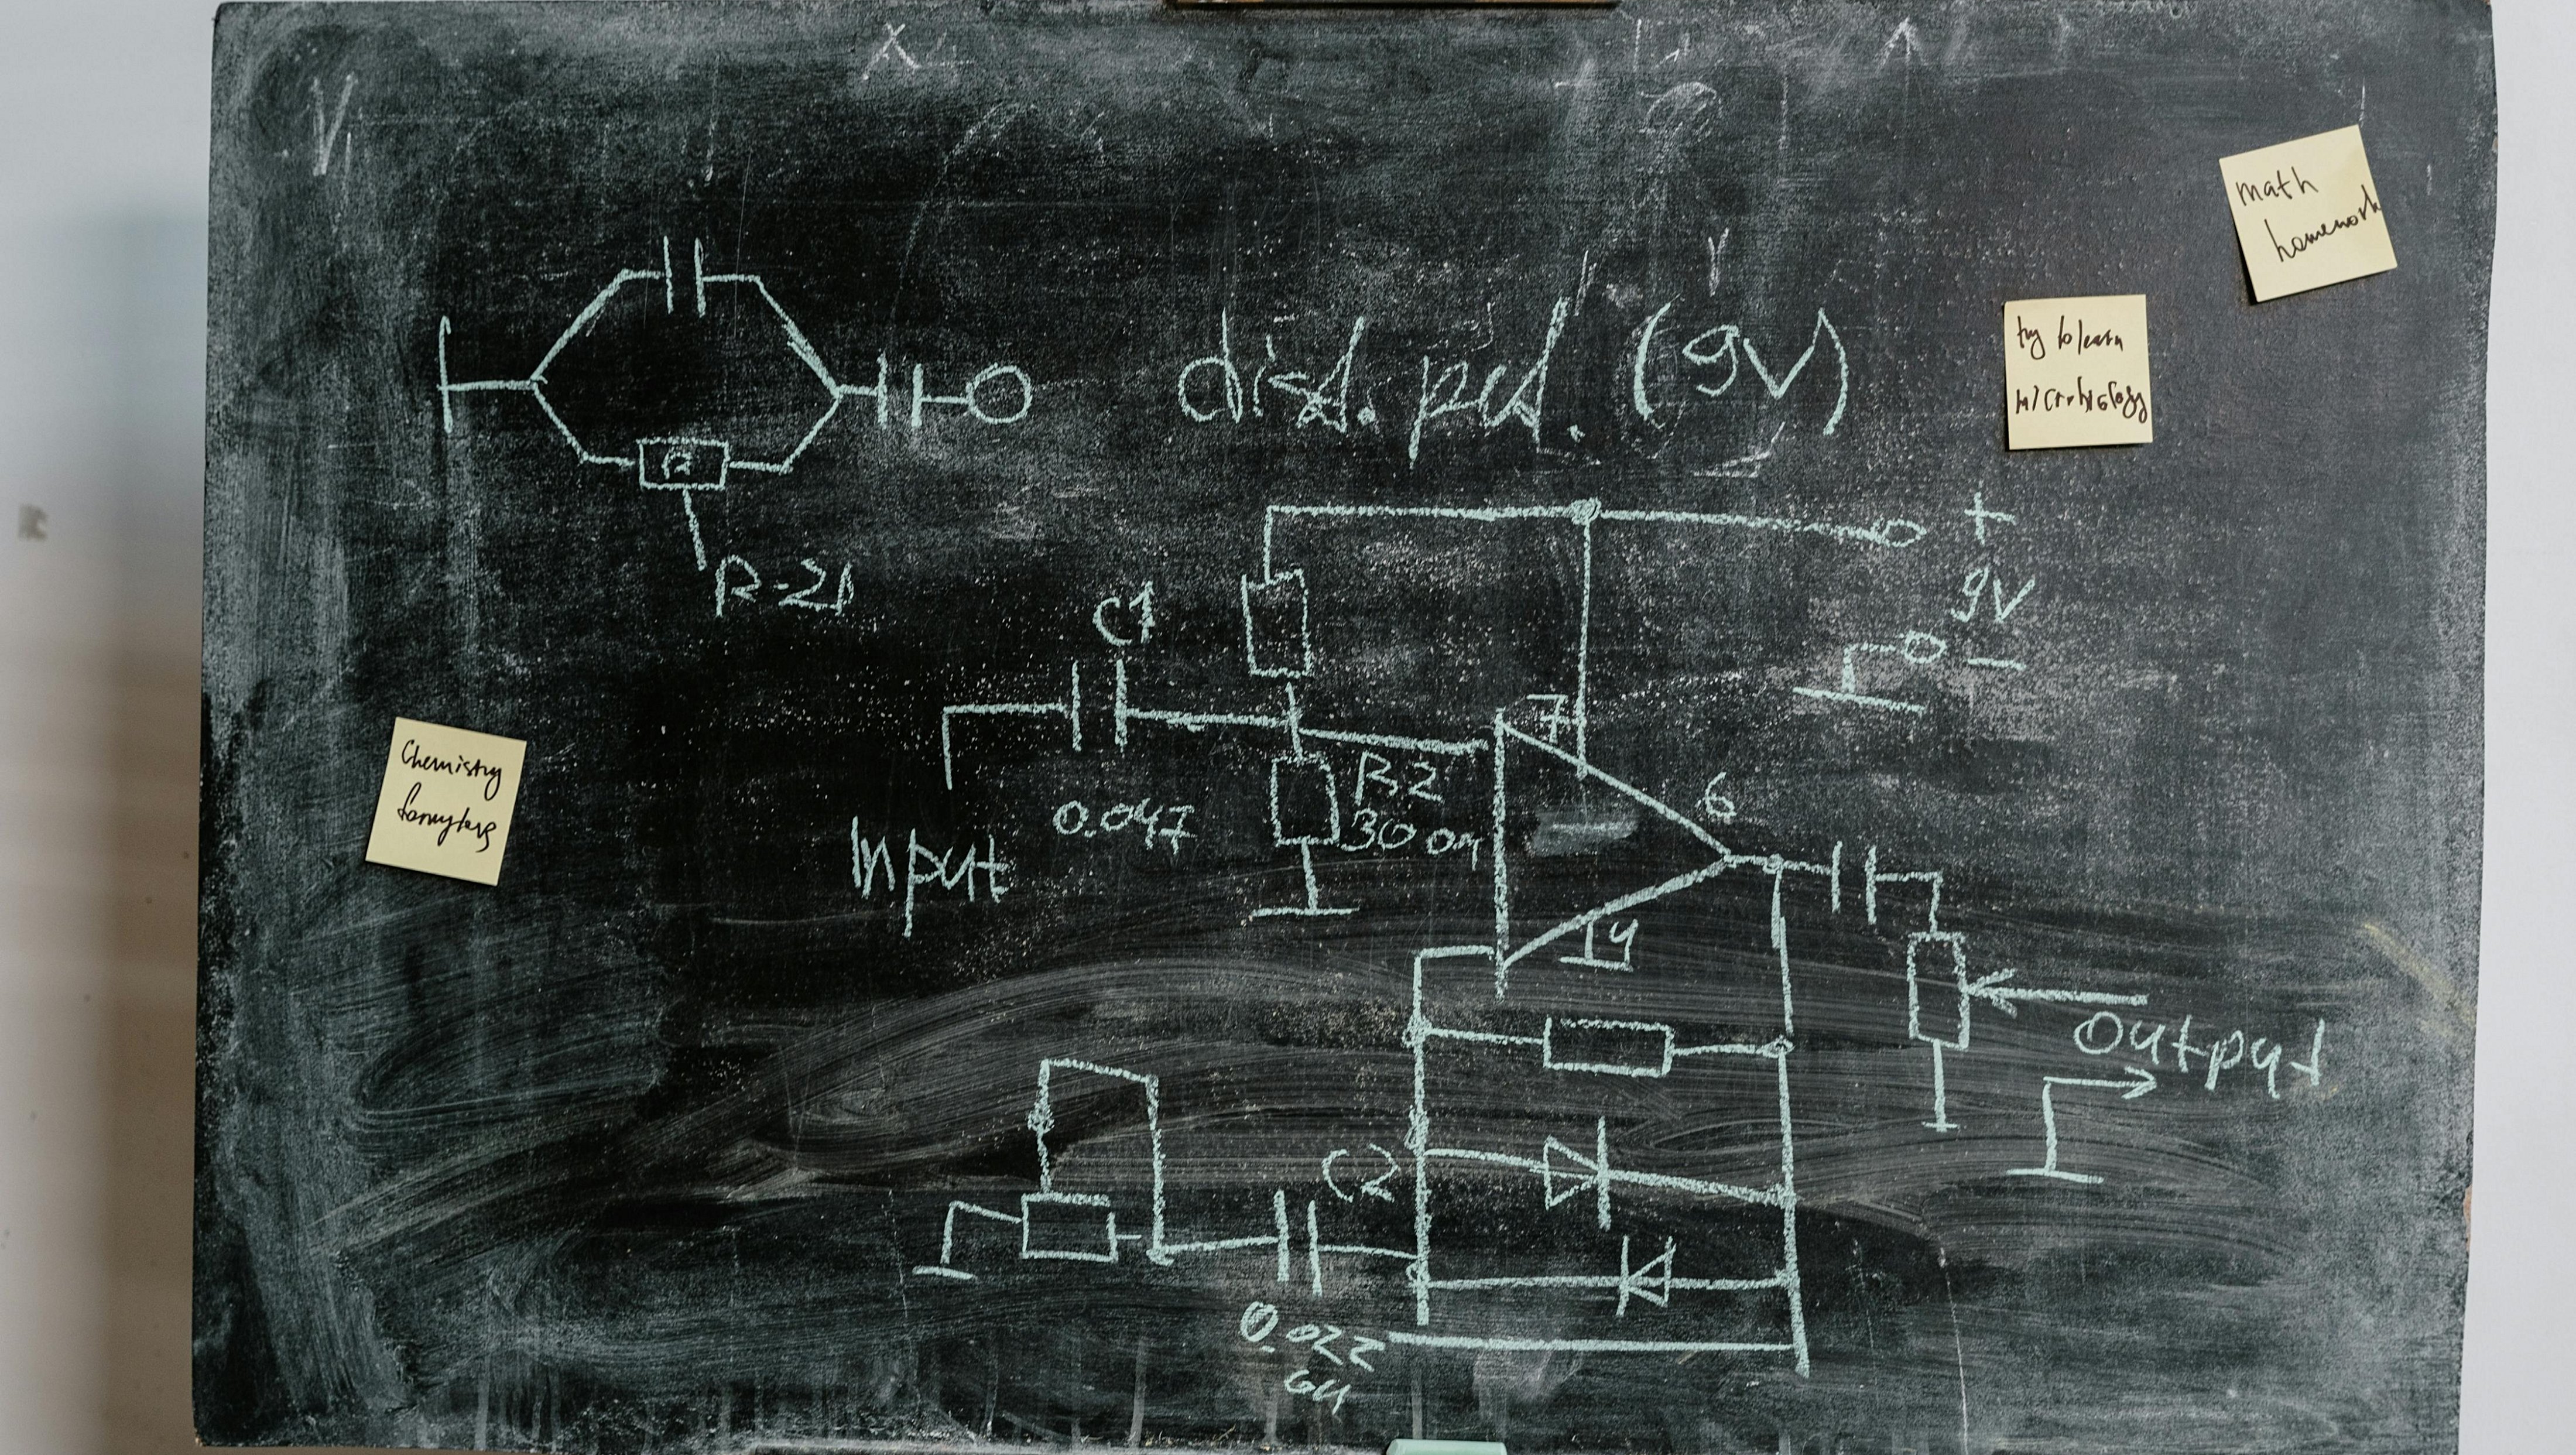 math
homework
dist. ped. (9V)
try to learn
microbiology
R
R-21
+
9V
-
C1
0.047
Input
R2
7
6
4
Chemistry
Output
C2
0.022